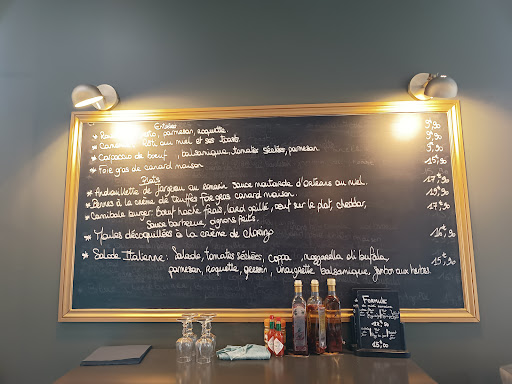 Entrées
parmesan, roquette. 9,90
rôti au miel et ses toasts 9,90
* Carpaccio de bœuf, balsamique, tomates séchées, parmesan. 9,90
* Foie gras de canard maison 15,90
Plats
* Andouillette de Jargeau au romarin sauce moutarde d'Orléans au miel. 17,90
* Pennes à la crème de truffes foie gras canard maison. 19,90
* Cannibale burger: bœuf haché frais, lard grillé, œuf sur le plat, cheddar, 17,90
sauce barbecue, oignons frits.
* Moules décoquillées à la crème de chorizo 14,90
* Salade Italienne: Salade, tomates séchées, coppa, mozzarella di bufala, 15,90
parmesan, roquette, gressin, vinaigrette balsamique, jambon aux herbes.
Formule
15,00